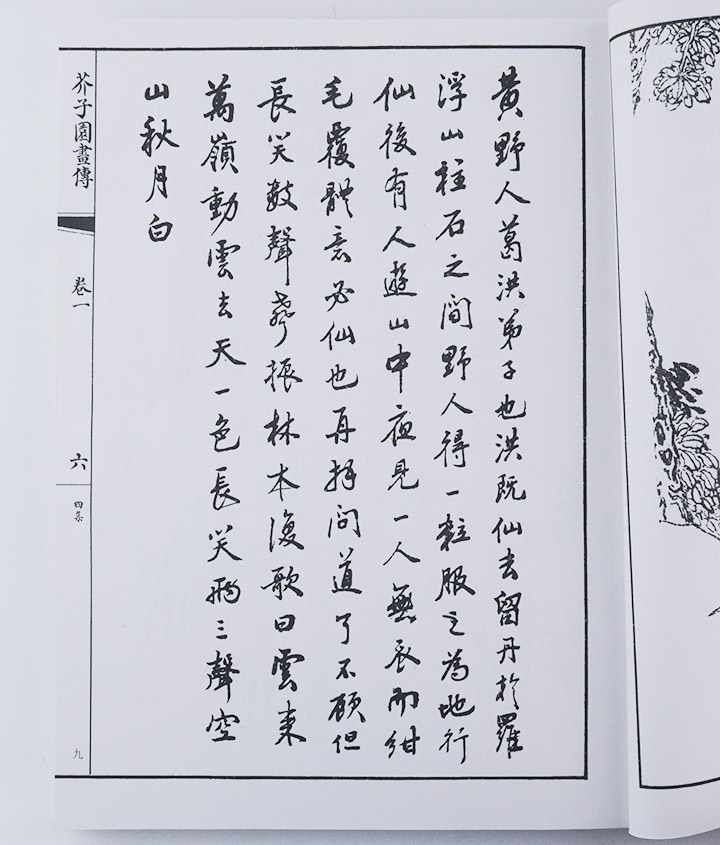 黃野人葛洪弟子也洪既仙去留丹於羅
浮山柱石之間野人得一粒服之為地行
仙後有人遊山中夜見一人無衣而紺
毛覆體意必仙也再拜問道了不顧但
長笑數聲振林本復歌曰雲来
萬嶺動雲去天一色長笑兩三聲空
山秋月白
芥子園畫傳
卷一
六
四集
九